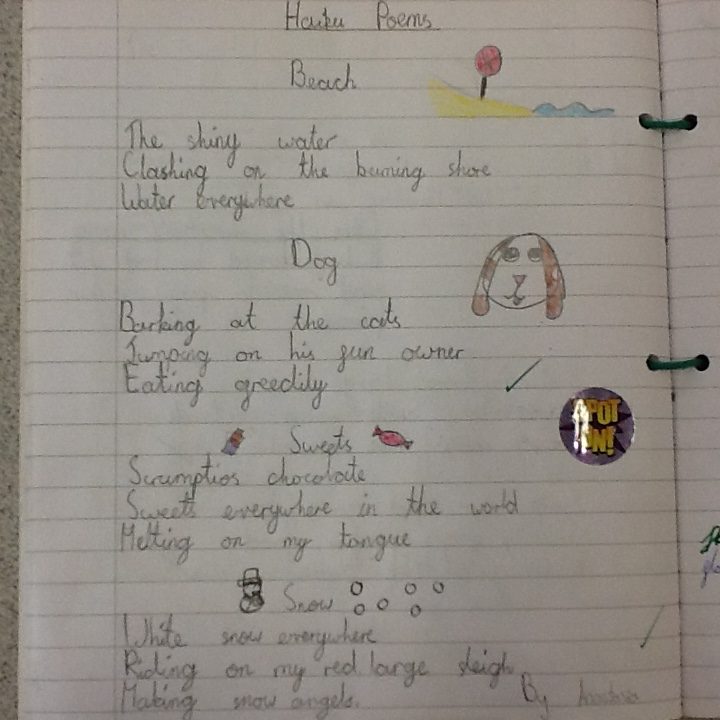 Haiku Poems
Beach
The shiny water
Clashing on the burning shore
Water everywhere
Dog
Barking at the cats
Jumping on his fun owner
Eating greedily
SPOT ON!
Sweets
Scrumptios chocolate
Sweets everywhere in the world
Melting on my tongue
Snow
White snow everywhere
Riding on my red large sleigh
Making snow angels.
By